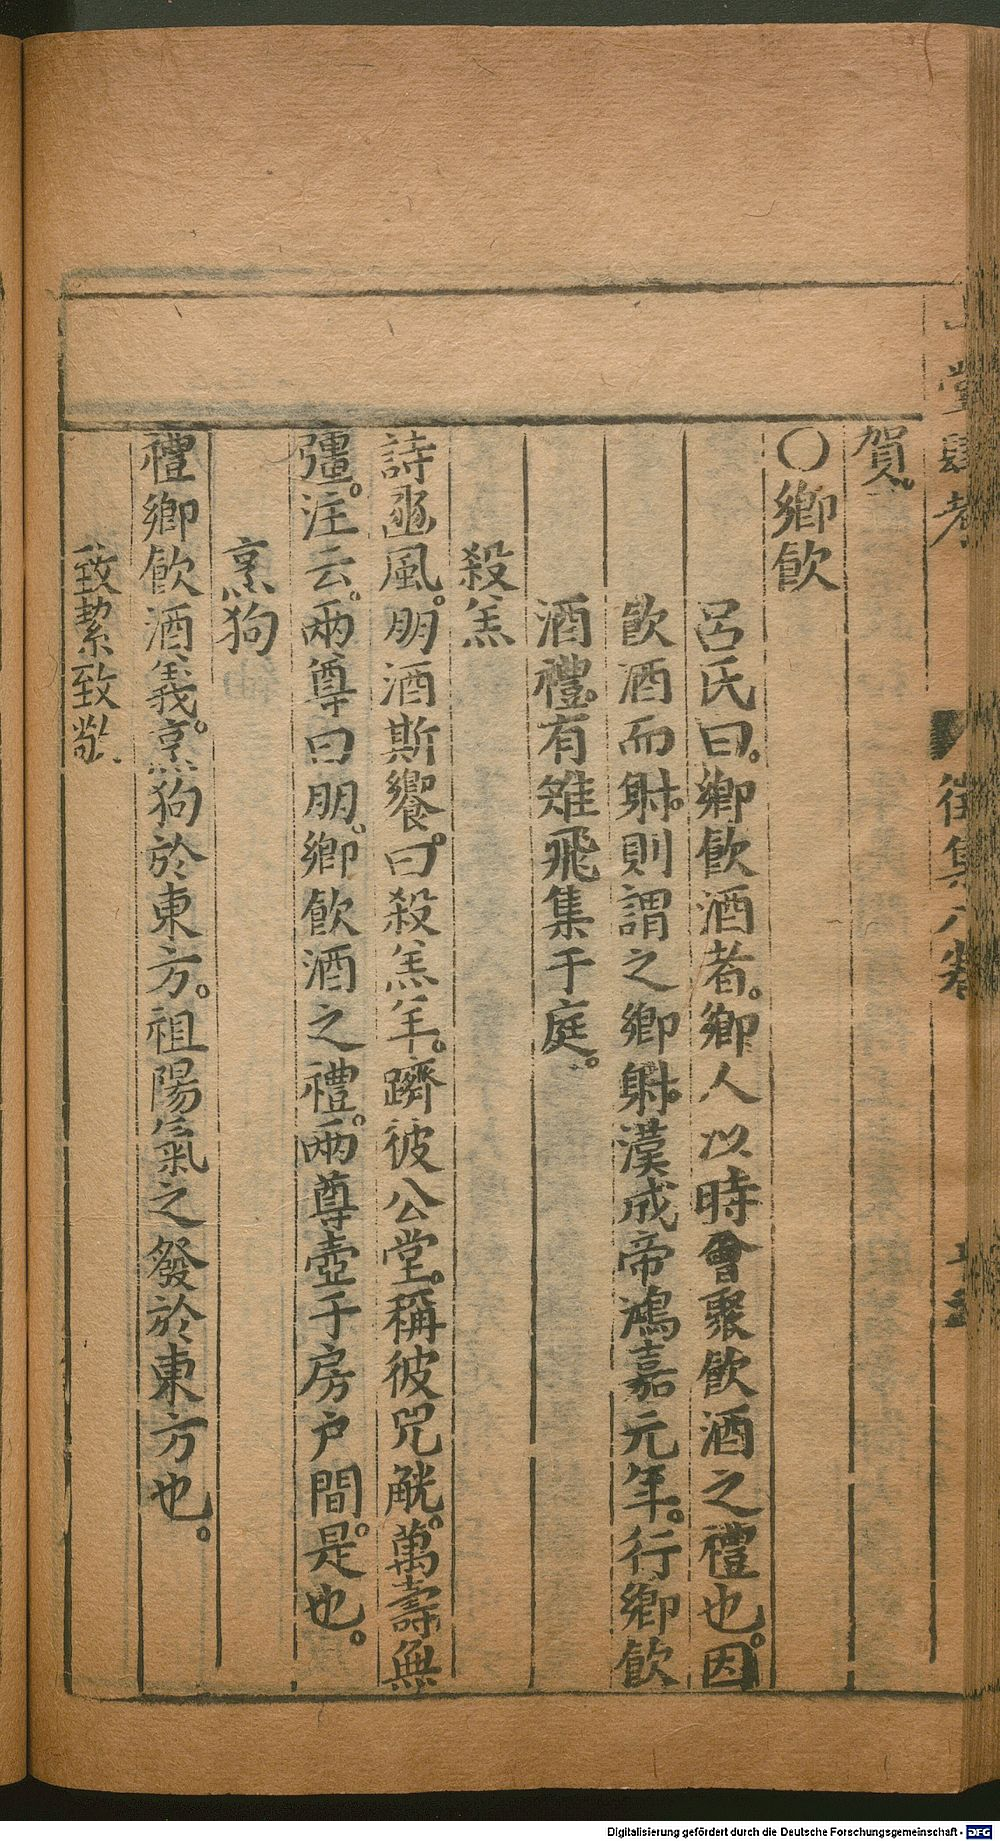 堂肆考 徵集 六卷
賀。
○鄉飲
呂氏曰。鄉飲酒者。鄉人以時會聚飲酒之禮也。因
飲酒而射。則謂之鄉射。漢成帝鴻嘉元年。行鄉飲
酒禮。有雉飛集于庭。
殺羔
詩豳風。朋酒斯饗。曰殺羔羊。躋彼公堂。稱彼兕觥。萬壽無
彊。注云。兩尊曰朋。鄉飲酒之禮。兩尊壺于房户間。是也。
烹狗
禮鄉飲酒義。烹狗於東方。祖陽氣之發於東方也。
致絜致敬
Digitalisierung gefördert durch die Deutsche Forschungsgemeinschaft - DFG